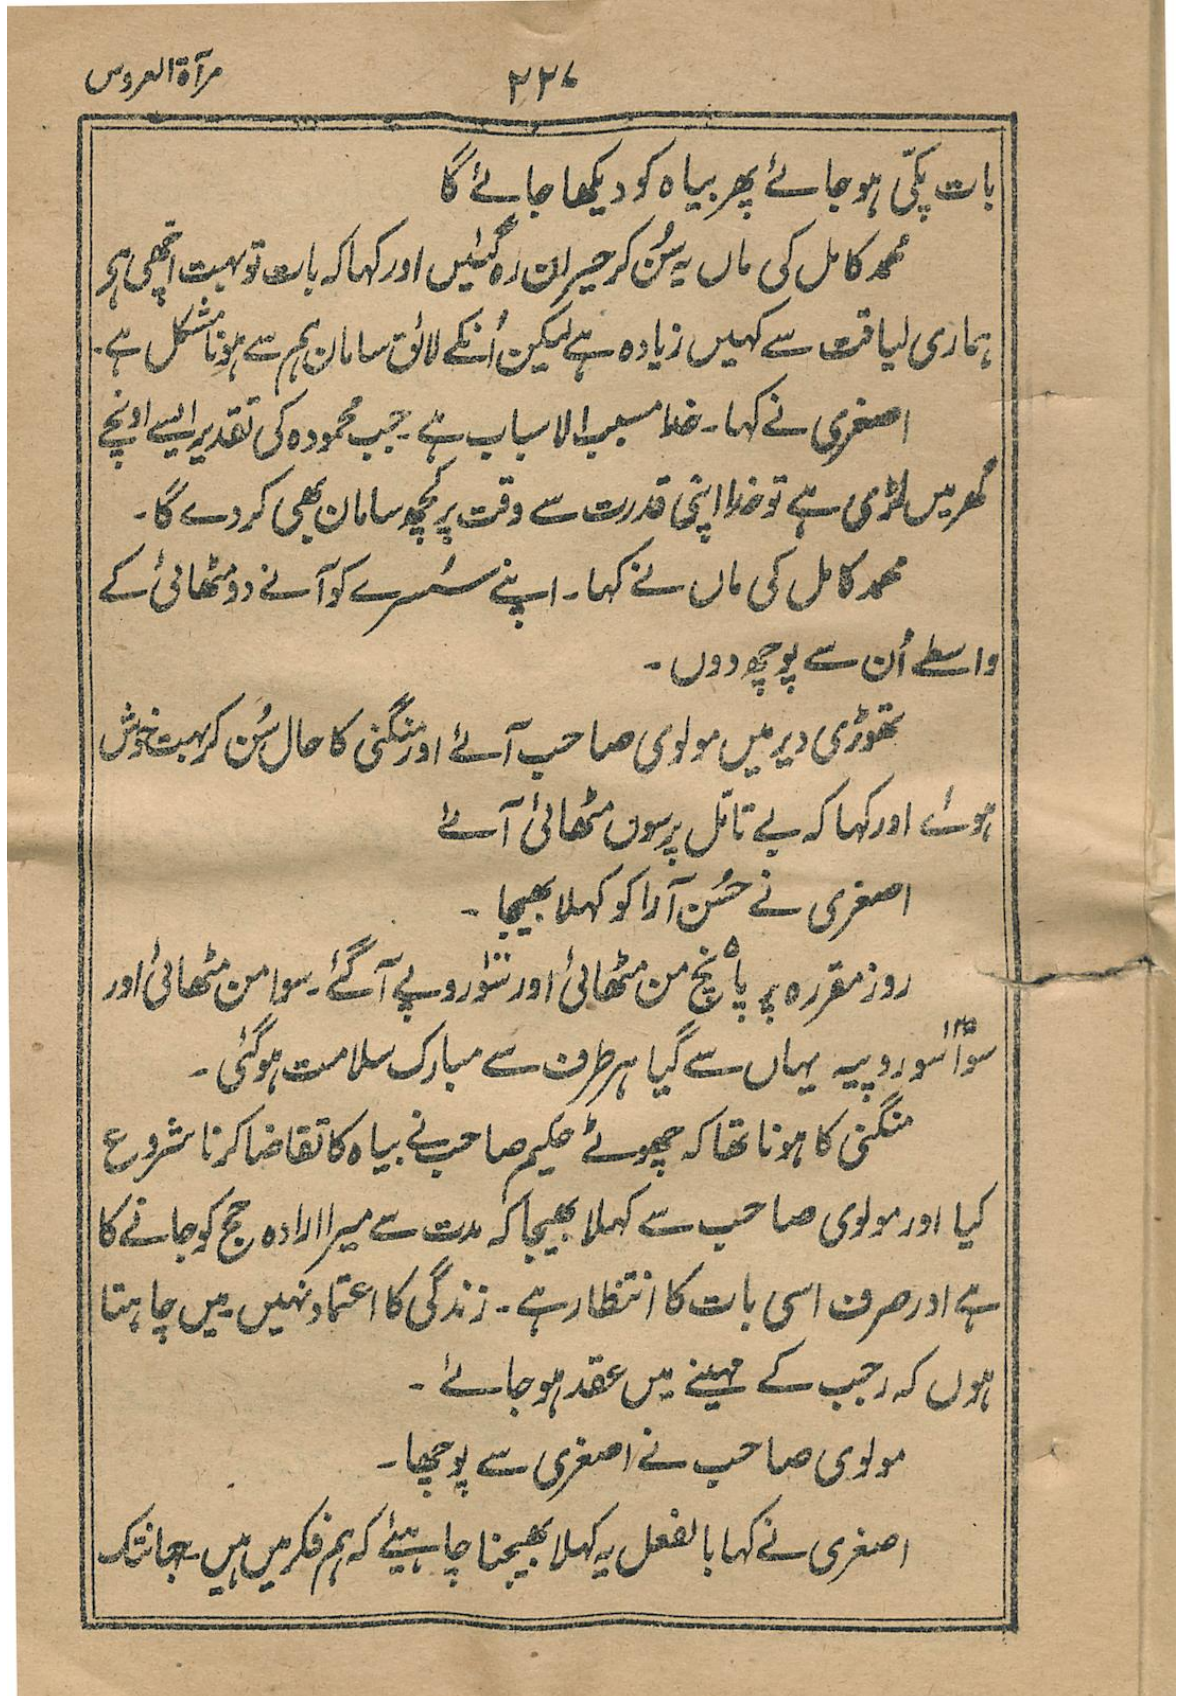 مرآۃ العروس
۲۲۷
بات پکّی ہو جائے پھر بیاہ کو دیکھا جائے گا
محمد کامل کی ماں یہ سُن کر حیران رہ گئیں اور کہا کہ بات تو بہت اچھی ہے
ہماری لیاقت سے کہیں زیادہ ہے لیکن اُنکے لائق سامان ہم سے ہونا مشکل ہے۔
اصغری نے کہا۔ خدا مسبب الاسباب ہے۔ جب محمودہ کی تقدیر ایسے اونچے
گھر میں لڑی ہے تو خدا اپنی قدرت سے وقت پر کچھ سامان بھی کر دے گا۔
محمد کامل کی ماں نے کہا۔ اپنے سُسرے کو آنے دو مٹھائی کے
واسطے اُن سے پوچھ دوں۔
تھوڑی دیر میں مولوی صاحب آئے اور منگنی کا حال سُن کر بہت خوش
ہوئے اور کہا کہ بے تامّل پرسوں مٹھائی آئے
اصغری نے حُسن آرا کو کہلا بھیجا۔
روز مقررہ پر پانچ ۵ من مٹھائی اور سَو روپے آ گئے۔ سوا من مٹھائی اور
سوّا سو ۱۲۵ روپیہ یہاں سے گیا ہر طرف سے مبارک سلامت ہو گئی۔
منگنی کا ہونا تھا کہ چھوٹے حکیم صاحب نے بیاہ کا تقاضا کرنا شروع
کیا اور مولوی صاحب سے کہلا بھیجا کہ مدت سے میرا ارادہ حج کو جانے کا
ہے اور صرف اسی بات کا انتظار ہے۔ زندگی کا اعتماد نہیں۔ میں چاہتا
ہوں کہ رجب کے مہینے میں عقد ہو جائے۔
مولوی صاحب نے اصغری سے پوچھا۔
اصغری نے کہا بالفعل یہ کہلا بھیجنا چاہیئے کہ ہم فکر میں ہیں۔ جہانتک